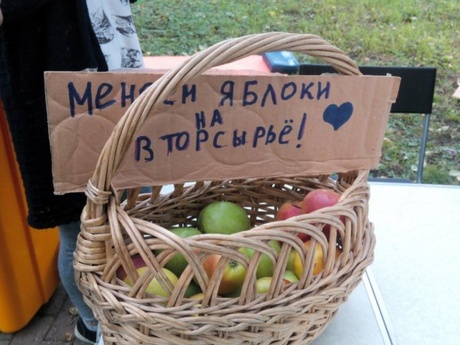 Меняем яблоки
на
вторсырьё!